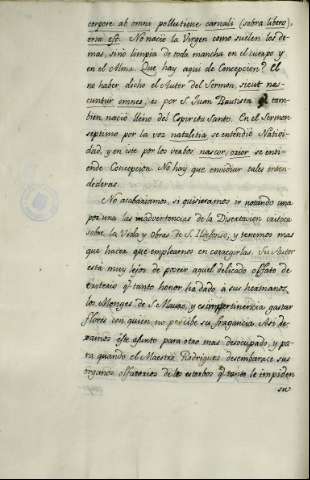 corpore ab omni pollutione carnali (sobra libero),
orta est. No nació la Virgen como suelen los de-
mas, sino limpia de toda mancha en el cuerpo y
en el Alma. Que hay aqui de Concepcion? El
no haber dicho el Autor del Sermon, sicut nas-
cuntur omnes, es por S. Juan Bautista q. tam-
bien nació lleno del Espiritu Santo. En el Sermon
septimo por la voz natalitia, se entendió Nativi-
dad, y en iste por los verbos nascor, orior se enti-
ende Concepcion. No hay que envidiar tales enten-
dederas.
No acabariamos, si quisieramos ir notando una
por una las inadvertencias de la Disertacion critica
sobre la Vida y Obras de S. Ildefonso, y tenemos mas
que hacer que emplearnos en La Autor
está muy lejos de poseer aquel delicado olfato de
criterio q. tanto honor ha dado á sus hermanos,
los Monges de S. Mauro, y es impertinencia gastar
flores con quien no percibe su fragancia. Asi de-
xamos este asunto para otro mas desocupado, y pa-
ra quando el Maestro Rodriguez desembarace sus
organos olfatorios de los estorbos q. tanto le impiden
su